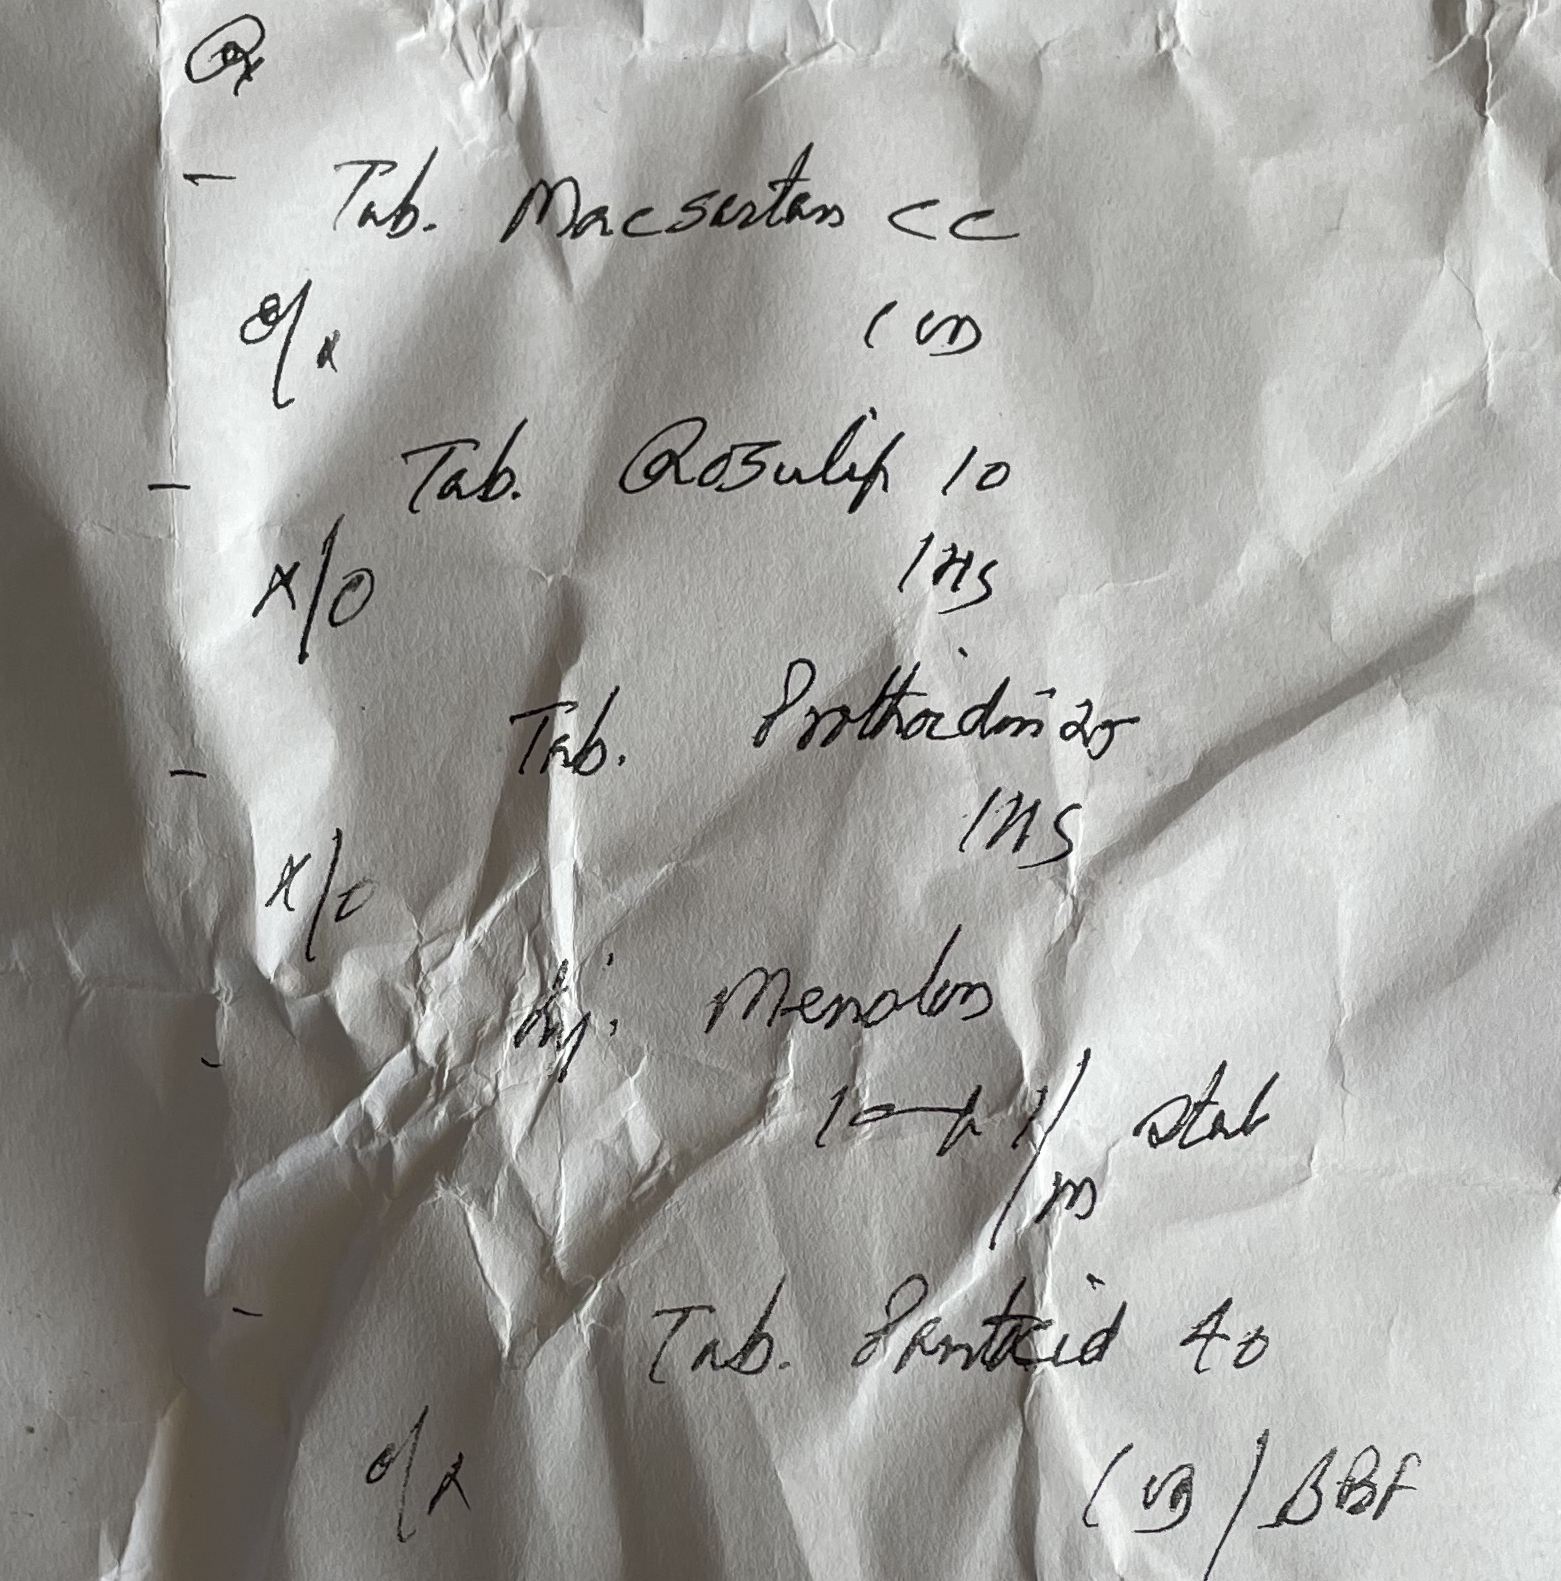 Rx
- Tab. Macsartan CC
o/x 1 OD
- Tab. Rosulip 10
x/o 1 HS
- Tab. Prothiaden 25
x/o 1 HS
- Inj. stat
1 / m
- Tab. Pantocid 40
o/x 1 OD / BBF